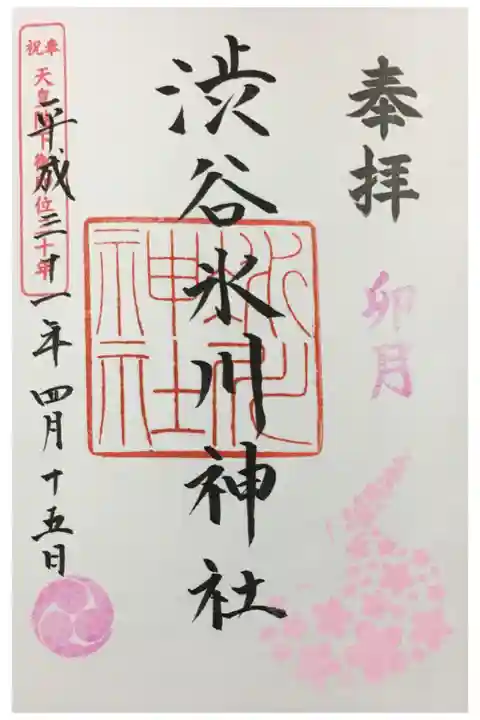 奉拝
卯月
渋谷氷川神社
氷川
神社
平成三十一年四月十五日
奉祝
天皇陛下御即位三十年